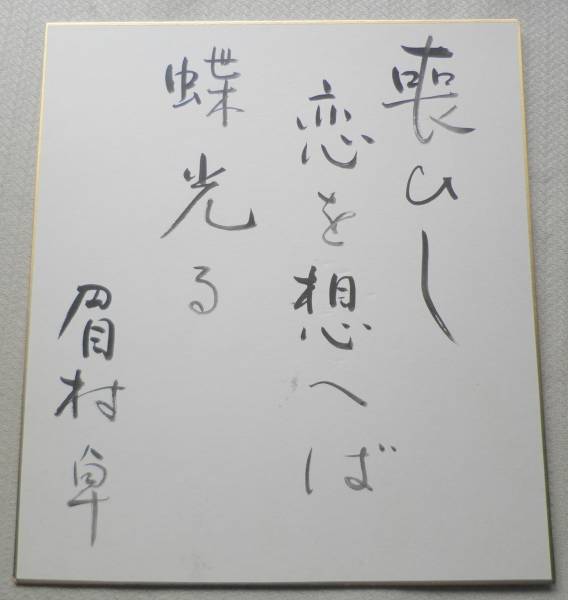 喪ひし
恋を想へば
蝶光る
眉村卓